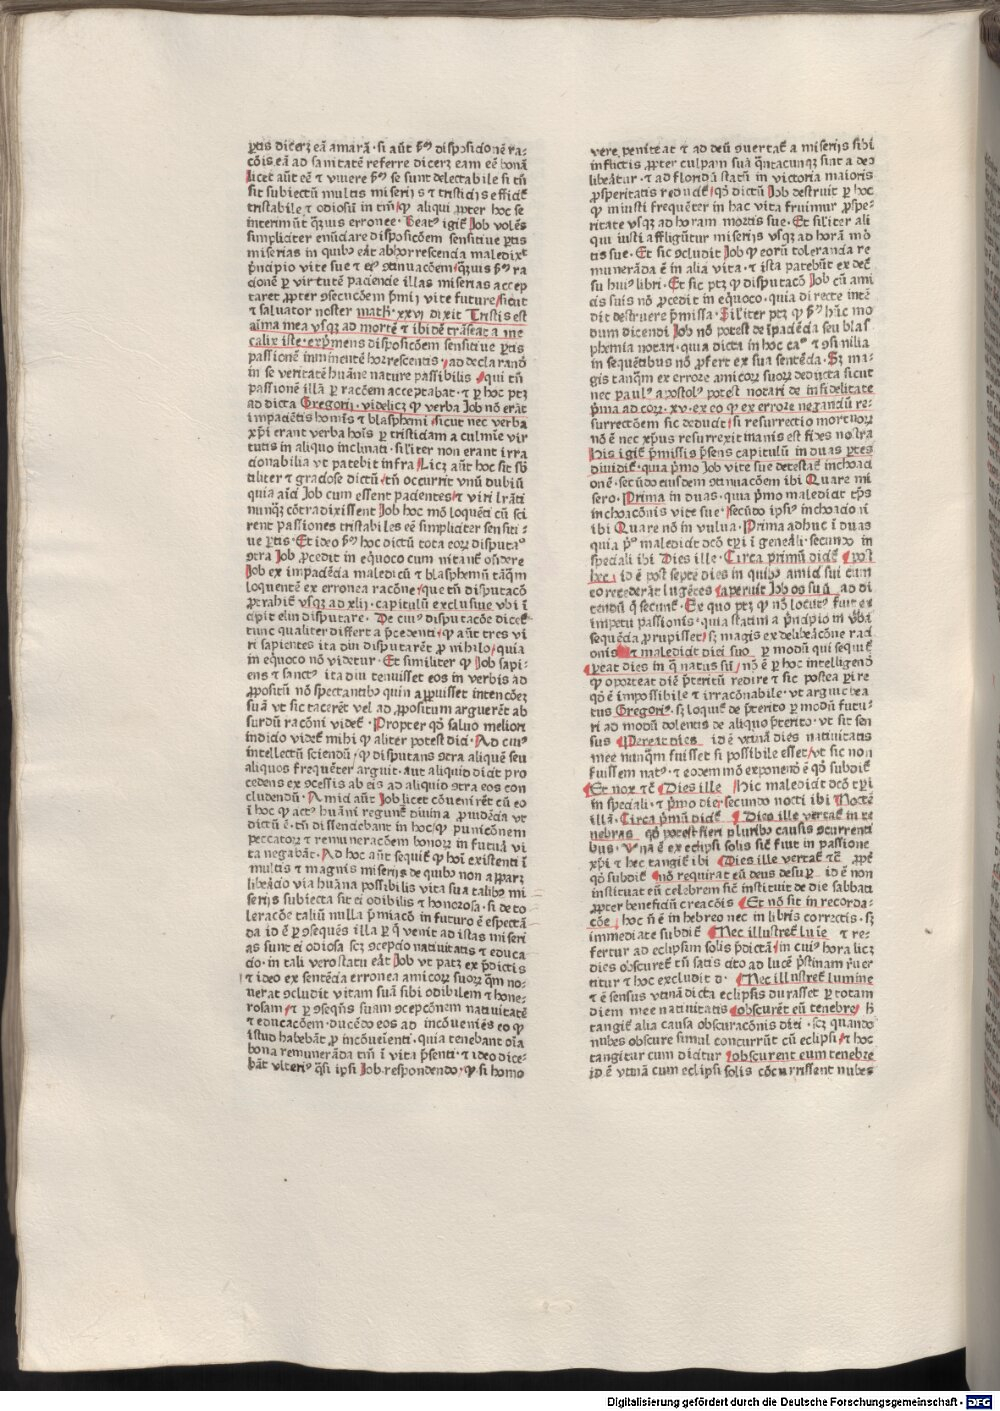 ptis dicerꝫ eā amarā · si aūt ẜm disposicionē ra⸗
cōis eā ad sanitatē referre dicerꝫ eam eē bonā
licet aūt eē ⁊ viuere ẜm se sunt delectabile si tn̄
sit subiectū multis miserijs ⁊ tristicijs efficit᷑
tristabile ⁊ odiosū in tm̄ ꝙ aliqui ꝓpter hoc se
interimūt qͣuis erronee · Beatꝰ igit᷑ Job volēs
simpliciter enūciare disposicōem sensitiue ptis
miserias in quibꝰ eāt abhorrescencia maledixit
pͥncipio vite sue ⁊ eiꝰ ꝯtinuacōem qͣuis ẜm ra
cionē ꝑ virtutē paciencie illas miserias accep
taret ꝓpter ꝯsecucōem pͥmij vite future sicut
⁊ saluator noster matħ · xxvj dixit Tristis est
aīma mea vsqꝫ ad mortē ⁊ ibidē trāseat a me
calix iste · expͥmens disposicōem sensitiue ptis
passionē imminentē horrescentis ad declarandū
in se veritatē hūane nature passibilis qui tn̄
passionē illā ꝑ racōem acceptabat · ⁊ ꝑ hoc ptꝫ
ad dicta Gregorij · videlicꝫ ꝙ verba Job nō erāt
impaciētis homīs ⁊ blasphemi sicut nec verba
xp̄i erant verba hoīs ꝑ tristiciam a culmīe vir
tutis in aliquo inclinati · siliter non erant irra
cionabilia vt patebit infra Licꝫ aūt hoc sit sb̄
tiliter ⁊ graciose dictū tn̄ occurrit vnū dubiū
quia aīci Job cum essent pacientes ⁊ viri lr̄ati
nunqͣꝫ cōtradixissent Job hoc mō loquēti cū sci
rent passiones tristabiles eē simpliciter sensiti⸗
ue ptis · Et ideo ẜm hoc dictū tota eoꝝ disputaͦ
ꝯtra Job ꝓcedit in equoco cum nitant᷑ oñdere
Job ex impaciēcia maledicū ⁊ blasphemū tāqͣm
loquentē ex erronea racōne que tn̄ disputacō
ꝓtrahit᷑ vsqꝫ ad xlij · capitulū exclusiue vbi ī
cipit eliu disputare · De cuiꝰ disputacōe dicet᷑
tunc qualiter differt a pͥcedenti ꝙ aūt tres vi
ri sapientes ita diu disputarēt ꝓ nihilo quia
in equoco nō videtur · Et similiter ꝙ Job sapi⸗
ens ⁊ sanctꝰ ita diu tenuisset eos in verbis ad
ꝓpositū nō spectantibꝰ quin apuisset intencōeꝫ
suā vt sic tacerēt vel ad ꝓpositum arguerēt ab
surdū racōni videt᷑ · Propter qđ saluo meliori
iudicio videt᷑ mihi ꝙ aliter potest dici · Ad cuiꝰ
intellectū sciendū ꝙ disputans ꝯtra aliquē seu
aliquos frequēter arguit · aut aliquid dicit pro
cedens ex ꝯcessis ab eis ad aliquid ꝯtra eos con
cludendū · Amici aūt Job licet cōuenirēt cū eo
ī hoc ꝙ actꝰ hūani regunt᷑ diuina ꝓuidēcia vt
dictū ē · tn̄ dissenciebant in hoc ꝙ punicōnem
peccatoꝝ ⁊ remuneracōem bonoꝝ in futuā vi
ta negabāt · Ad hoc aūt sequit᷑ ꝙ hoī existenti ī
multis ⁊ magnis miserijs de quibꝰ non apparꝫ
liberacio via hūana possibilis vita sua talibꝰ mi
serijs subiecta sit ei odibilis ⁊ honerosa · si de to
leracōe taliū nulla pͥmiacō in futuro ē expectā
da id ē ꝑ ꝯsequēs illa ꝑ qͣ venit ad istas miseri
as sunt ei odiosa scꝫ ꝯcepcio natiuitatis ⁊ educa
cio · in tali vero statu eāt Job vt patꝫ ex pͥdictis
⁊ ideo ex sentēcia erronea amicoꝝ suoꝝ qͣm no⸗
uerat ꝯcludit vitam suā sibi odibilem ⁊ hone⸗
rosam ⁊ ꝑ ꝯseqn̄s suam ꝯcepcōnem natiuitatē
⁊ educacōem · ducēdo eos ad incōueniēs eo ꝙ
istud habebāt ꝓ incōueniēti · quia tenebant oīa
bona remunerāda tm̄ ī vita pͥsenti · ⁊ ideo dice⸗
bāt vlteriꝰ qͣsi ipsi Job respondendo · ꝙ si homo
vere peniteat ⁊ ad deū ꝯuertat᷑ a miserijs sibi
inflictis ꝓpter culpam suā qͣntacunqꝫ sint a deo
libeāt᷑ur · ⁊ ad floridū statū in victoria maioris
ꝓsperitatis reducit᷑ qđ dictū Job destruit ꝑ hoc
ꝙ iniusti frequēter in hac vita fruimur ꝓspe⸗
ritate vsqꝫ ad horam mortis sue · Et siliter ali
qui iusti affligūtur miserijs vsqꝫ ad horā mō
tis sue · Et sic ꝯcludit Job ꝙ eoꝝ tolerancia re
munerāda ē in alia vita · ⁊ ista patebūt ex dec̄
su huiꝰ libri · Et sic ptꝫ ꝙ disputacō Job cū ami
cis suis nō ꝓcedit in equoco · quia directe intē
dit destruere pͥmissa · Siliter ptꝫ ꝙ ẜm hūc mo
dum dicendi Job nō potest de īpaciēcia seu blas
phemia notari · quia dicta in hoc caͦ ⁊ ꝯsimilia
in sequētibus nō ꝓfert ex sua sentēcia · Sꝫ ma⸗
gis tanqͣm ex errore amicoꝝ suoꝝ deducta sicut
nec paulꝰ apostolꝰ potest notari de infidelitate
pͥma ad corꝝ · xv · ex eo ꝙ ex errore negandū re⸗
surrectōem sic deducit si resurrectio mortuoꝝ
nō ē nec xp̄us resurrexit inanis est fides nostra
His igit᷑ pͥmissis pͥsens capitulū in duas ptes
diuidit᷑ · quia pͥmo Job vite sue detestat᷑ inchoaci
onē · secūdo eiusdem ꝯtinuacōem ibi Quare mi
sero · Prima in duas · quia pͥmo maledicit tp̄s
inchoacōnis vite sue secūdo ipsiꝰ inchoacio nī
ibi Quare nō in vulua · Prima adhuc ī duas
quia pͦ maledicit dcō tp̄i ī gen̄ali · secundo in
speciali ibi Dies ille · Circa primū dicit᷑ post
hec id ē post septē dies in quibꝰ amici sui cum
eo recederāt lugētes aperuit Job os suū ad di
cendū ꝙ secunt᷑ · Ex quo ptꝫ ꝙ nō locutꝰ fuit ex
impetu passionis · quia statim a pͥncipio in vͥba
sequēcia ꝓrupisset sꝫ magis ex delibeācōne raci
onis ⁊ maledicit diei suo ꝑ modū qui sequit᷑
peat dies in qͣ natus sū nō ē ꝑ hoc intelligendū
ꝙ oporteat diē pͥteritū redire ⁊ sic postea ꝑire
qđ ē impossibile ⁊ irracōnabile · vt arguit bea
tus Gregoriꝰ · sꝫ loquit᷑ de pͥterito ꝑ modū futu⸗
ri ad modū dolentis de aliquo pͥterito · vt sit sen
sus Pereat dies id ē vtinā dies natiuitatis
mee nunqͣm fuisset si possibile esset vt sic non
fuissem natꝰ · ⁊ eodem mō exponendū ē qđ subdit᷑
Et nox ⁊c̄ Dies ille Hic maledicit dcō tp̄i
in speciali · ⁊ pͥmo diei secundo nocti ibi Noctē
illā · Circa pͥmū dicit᷑ Dies ille vertat᷑ in te
nebras qđ potest fieri pluribꝰ causis ꝯcurrenti
bus · Vna ē ex eclipsi solis sic̄ fuit in passione
xp̄i ⁊ hec tangit᷑ ibi Dies ille vertat᷑ ⁊c̄ ꝓpt̄
qđ subdit᷑ nō requirat eū deus desuꝑ id ē non
instituat eū celebrem sic̄ instituit de die sabbati
ꝓpter beneficiū creacōis Et nō sit in recorda⸗
cōe hoc n̄ ē in hebreo nec in libris correctis · sꝫ
immediate subdit᷑ Nec illustret᷑ luīe ⁊ re⸗
fertur ad eclipsim solis pͥdictā in cuiꝰ hora licꝫ
dies obscuret᷑ tn̄ satis cito ad lucē pͥstinam ruer
titur ⁊ hoc excludit d · Nec illustret᷑ lumine
⁊ ē sensus vtinā dicta eclipsis durasset ꝑ totam
diem mee natiuitatis obscurēt eū tenebre ħ
tangit᷑ alia causa obscuracōnis diei · scꝫ quando
nubes obscure simul concurrūt cū eclipsi ⁊ hoc
tangitur cum dicitur obscurent eum tenebre
id ē vtinā cum eclipsi solis cōcurrissent nubes
Digitalisierung gefördert durch die Deutsche Forschungsgemeinschaft - DFG